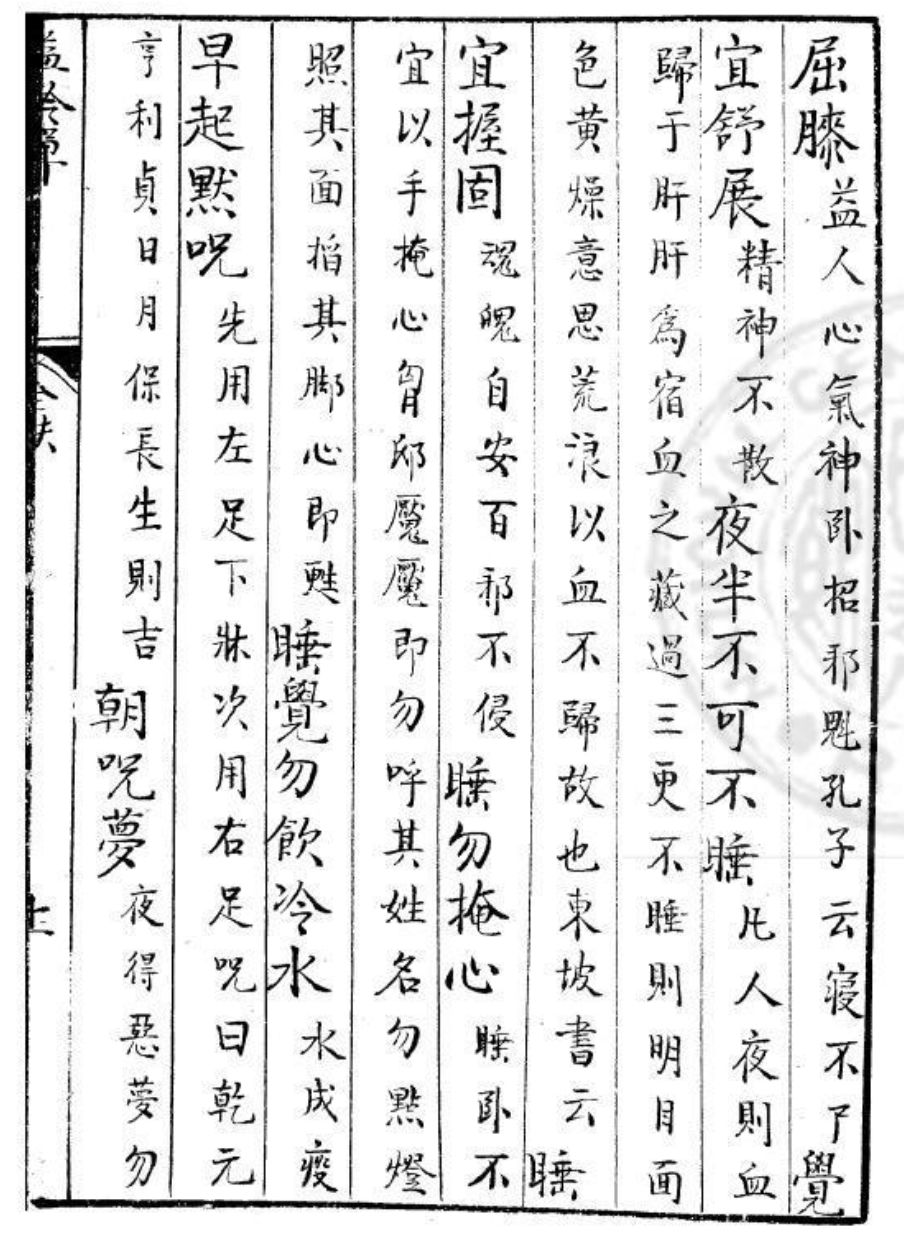 屈膝益人心氣神卧招邪魁孔子云寢不尸覺
宜舒展精神不散夜半不可不睡凡人夜則血
歸于肝肝爲宿血之藏過三更不睡則明目面
色黃燥意思荒浪以血不歸故也東坡書云睡
宜握固魂魄自安百邪不侵睡勿掩心睡卧不
宜以手掩心胷邸魘魘即勿呼其姓名勿點燈
照其面搯其脚心即甦睡覺勿飲冷水水成痰
早起黙呪先用左足下牀次用右足呪曰乾元
亨利貞日月保長生則吉朝呪夢夜得惡夢勿
益齡單